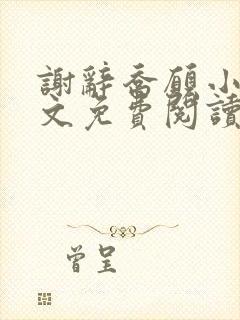 謝辭喬願小
文免費閱讀
曾呈